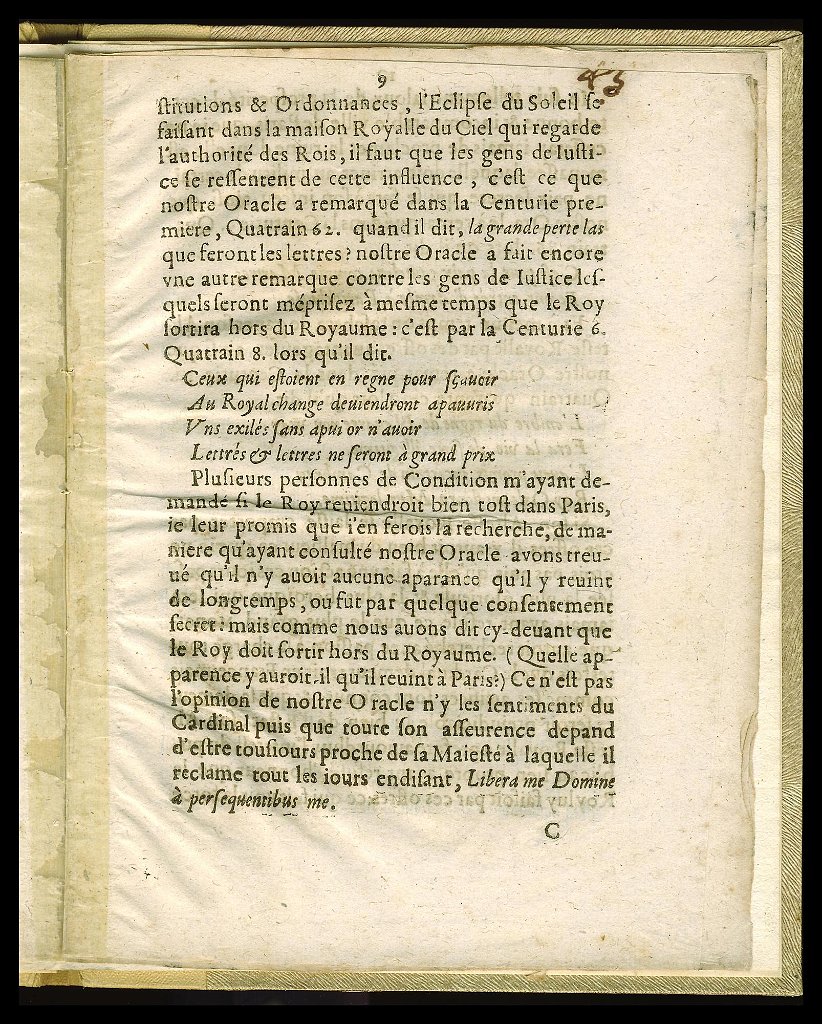 9
43
ſtitutions & Ordonnances, l'Eclipſe du Soleil ſe
faiſant dans la maiſon Royalle du Ciel qui regarde
l'authorité des Rois, il faut que les gens de Iuſti-
ce ſe reſſentent de cette influence, c'eſt ce que
noſtre Oracle a remarqué dans la Centurie pre-
miere, Quatrain 62. quand il dit, la grande perte las
que feront les lettres? noſtre Oracle a fait encore
vne autre remarque contre les gens de Iuſtice leſ-
quels ſeront mépriſez à meſme temps que le Roy
ſortira hors du Royaume: c'eſt par la Centurie 6.
Quatrain 8. lors qu'il dit.
Ceux qui eſtoient en regne pour ſçauoir
Au Royal change deuiendront apauuris
Vns exilés ſans apui or n'auoir
Lettrés & lettres ne ſeront à grand prix
Pluſieurs perſonnes de Condition m'ayant de-
mandé ſi le Roy reuiendroit bien toſt dans Paris,
ie leur promis que i'en ferois la recherche, de ma-
niere qu'ayant conſulté noſtre Oracle avons treu-
ué qu'il n'y auoit aucune aparance qu'il y reuint
de longtemps, ou fut par quelque conſentement
ſecret: mais comme nous auons dit cy-deuant que
le Roy doit ſortir hors du Royaume. (Quelle ap-
parence y auroit-il qu'il reuint à Paris?) Ce n'eſt pas
l'opinion de noſtre Oracle n'y les ſentiments du
Cardinal puis que toute ſon aſſeurence depand
d'eſtre touſiours proche de ſa Maieſté à laquelle il
reclame tout les iours endiſant, Libera me Domine
à perſequentibus me.
C